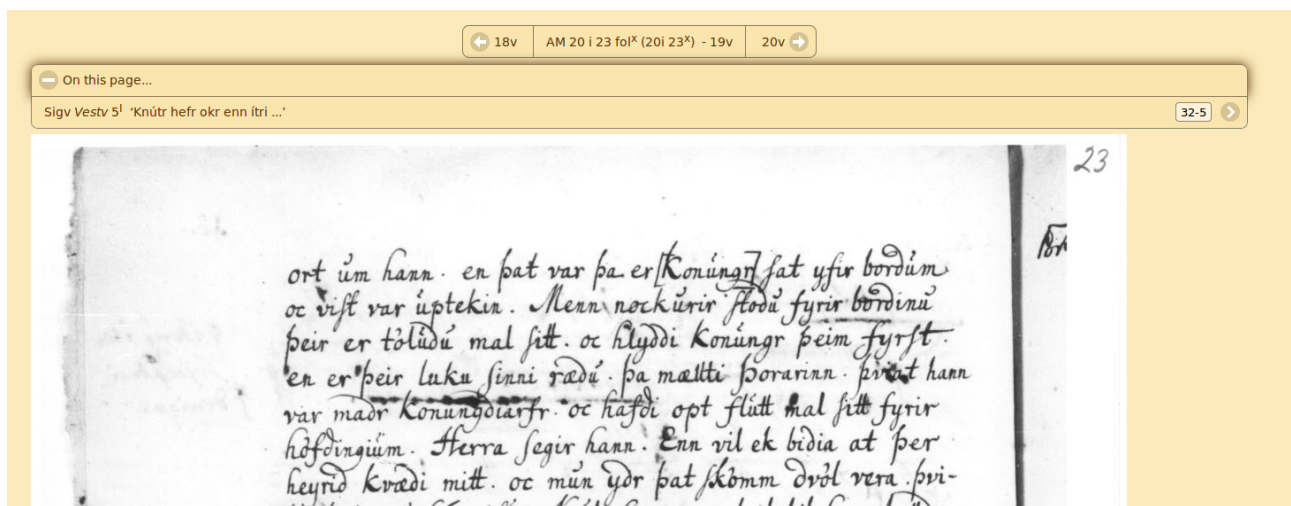 18v
AM 20 i 23 folˣ (20i 23ˣ) - 19v
20v
On this page...
Sigv Vestv 5ᴵ ‘Knútr hefr okr enn ítri ...’
32-5
23
ort um hann. en þat var þa er [Konungr] sat yfir bordum
oc vist var uptekin. Menn nockurir stodu fyrir bordinu
þeir er toludu mal sitt. oc hlyddi Konungr þeim fyrst.
en er þeir luku sinni rædu. þa mællti Þorarinn. þviat hann
var madr Konungdiarfr. oc hafdi opt flutt mal sitt fyrir
hofdingium. Herra segir hann. Enn vil ek bidia at þer
heyrid Kvædi mitt. oc mun ydr þat skomm dvol vera. þvi-